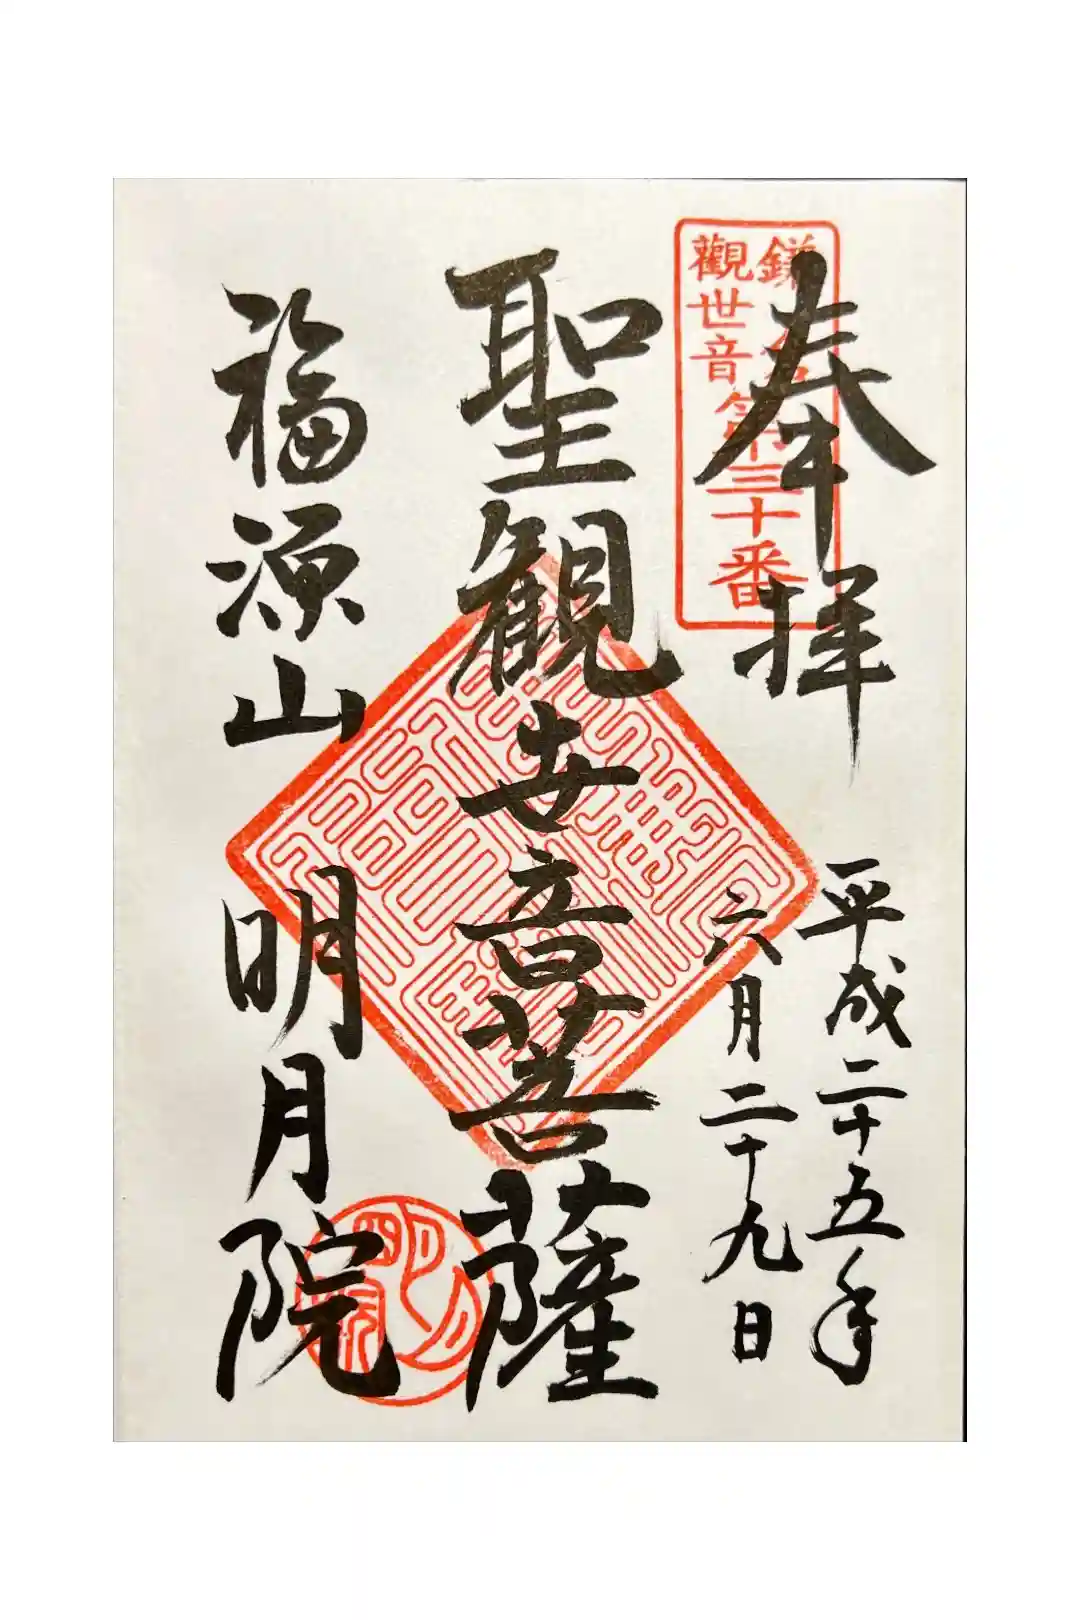 奉拝
鎌倉
觀世音
第三十番
平成二十五年
六月二十九日
聖観世音菩薩
福源山 明月院
明月院